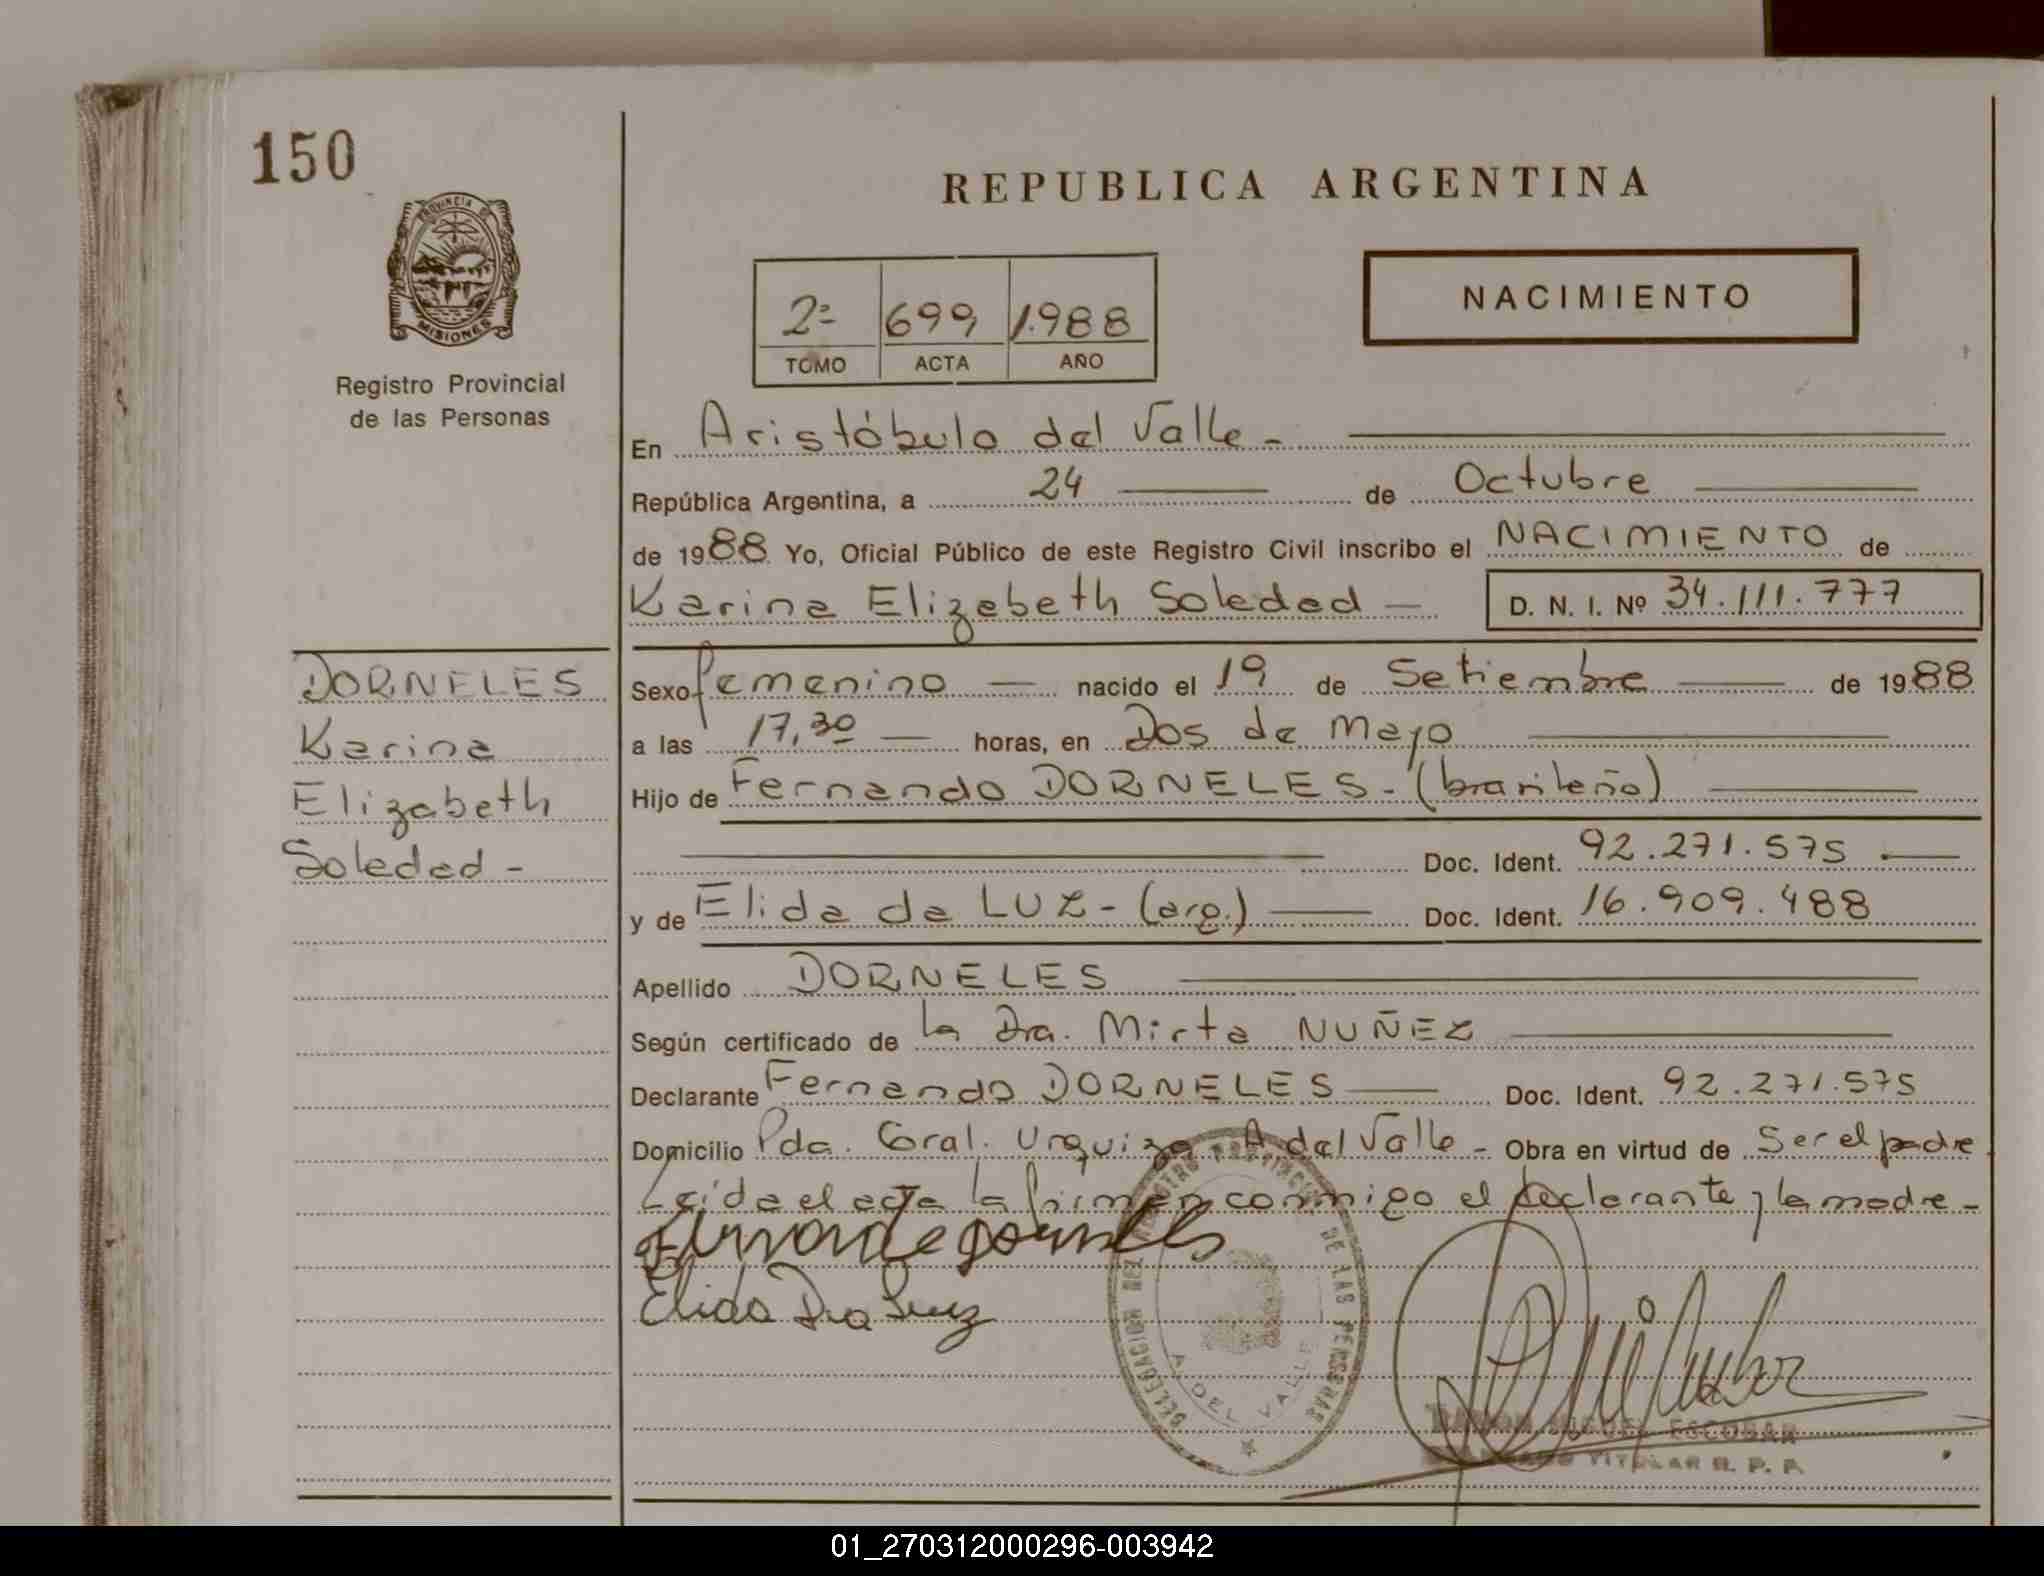 150
PROVINCIA DE
MISIONES
Registro Provincial
de las Personas
REPUBLICA ARGENTINA
2º 699 1.988
TOMO ACTA AÑO
NACIMIENTO
En Aristóbulo del Valle -
República Argentina, a 24 de Octubre
de 1988 Yo, Oficial Público de este Registro Civil inscribo el NACIMIENTO de
Karina Elizabeth Soledad — D. N. I. Nº 34.111.777
DORNELES
Karina
Elizabeth
Soledad -
Sexo femenino — nacido el 19 de Setiembre — de 1988
a las 17,30 — horas, en Dos de Mayo
Hijo de Fernando DORNELES - (brasileño)
Doc. Ident. 92.271.575 —
y de Elida da LUZ - (arg.) — Doc. Ident. 16.909.488
Apellido DORNELES
Según certificado de la Dra. Mirta NUÑEZ
Declarante Fernando DORNELES — Doc. Ident. 92.271.575
Domicilio Pda. Gral. Urquiza A. del Valle - Obra en virtud de Ser el padre
Leída el acta la firman conmigo el declarante y la madre -
Elida Da Luz
DELEGACION DEL REGISTRO PROVINCIAL DE LAS PERSONAS
A. DEL VALLE
RAMON MIGUEL ESCOBAR
TITULAR R. P. P.
01_270312000296-003942